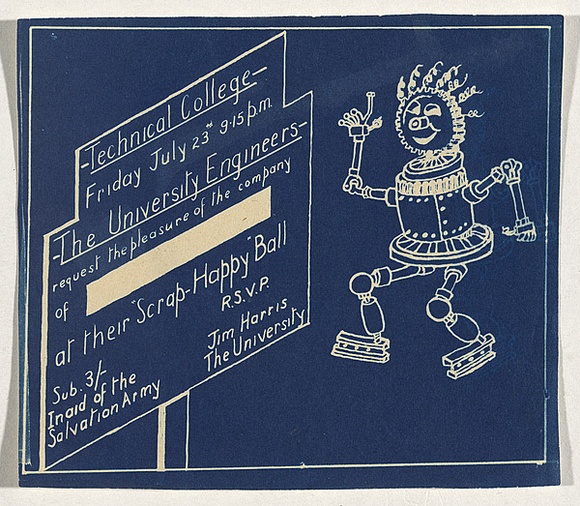 -Technical College-
Friday July 23rd 9·15 p.m
-The University Engineers-
request the pleasure of the company
of
at their "Scrap-Happy" Ball
R.S.V.P.
Jim Harris
The University
Sub. 3/-
In aid of the
Salvation Army